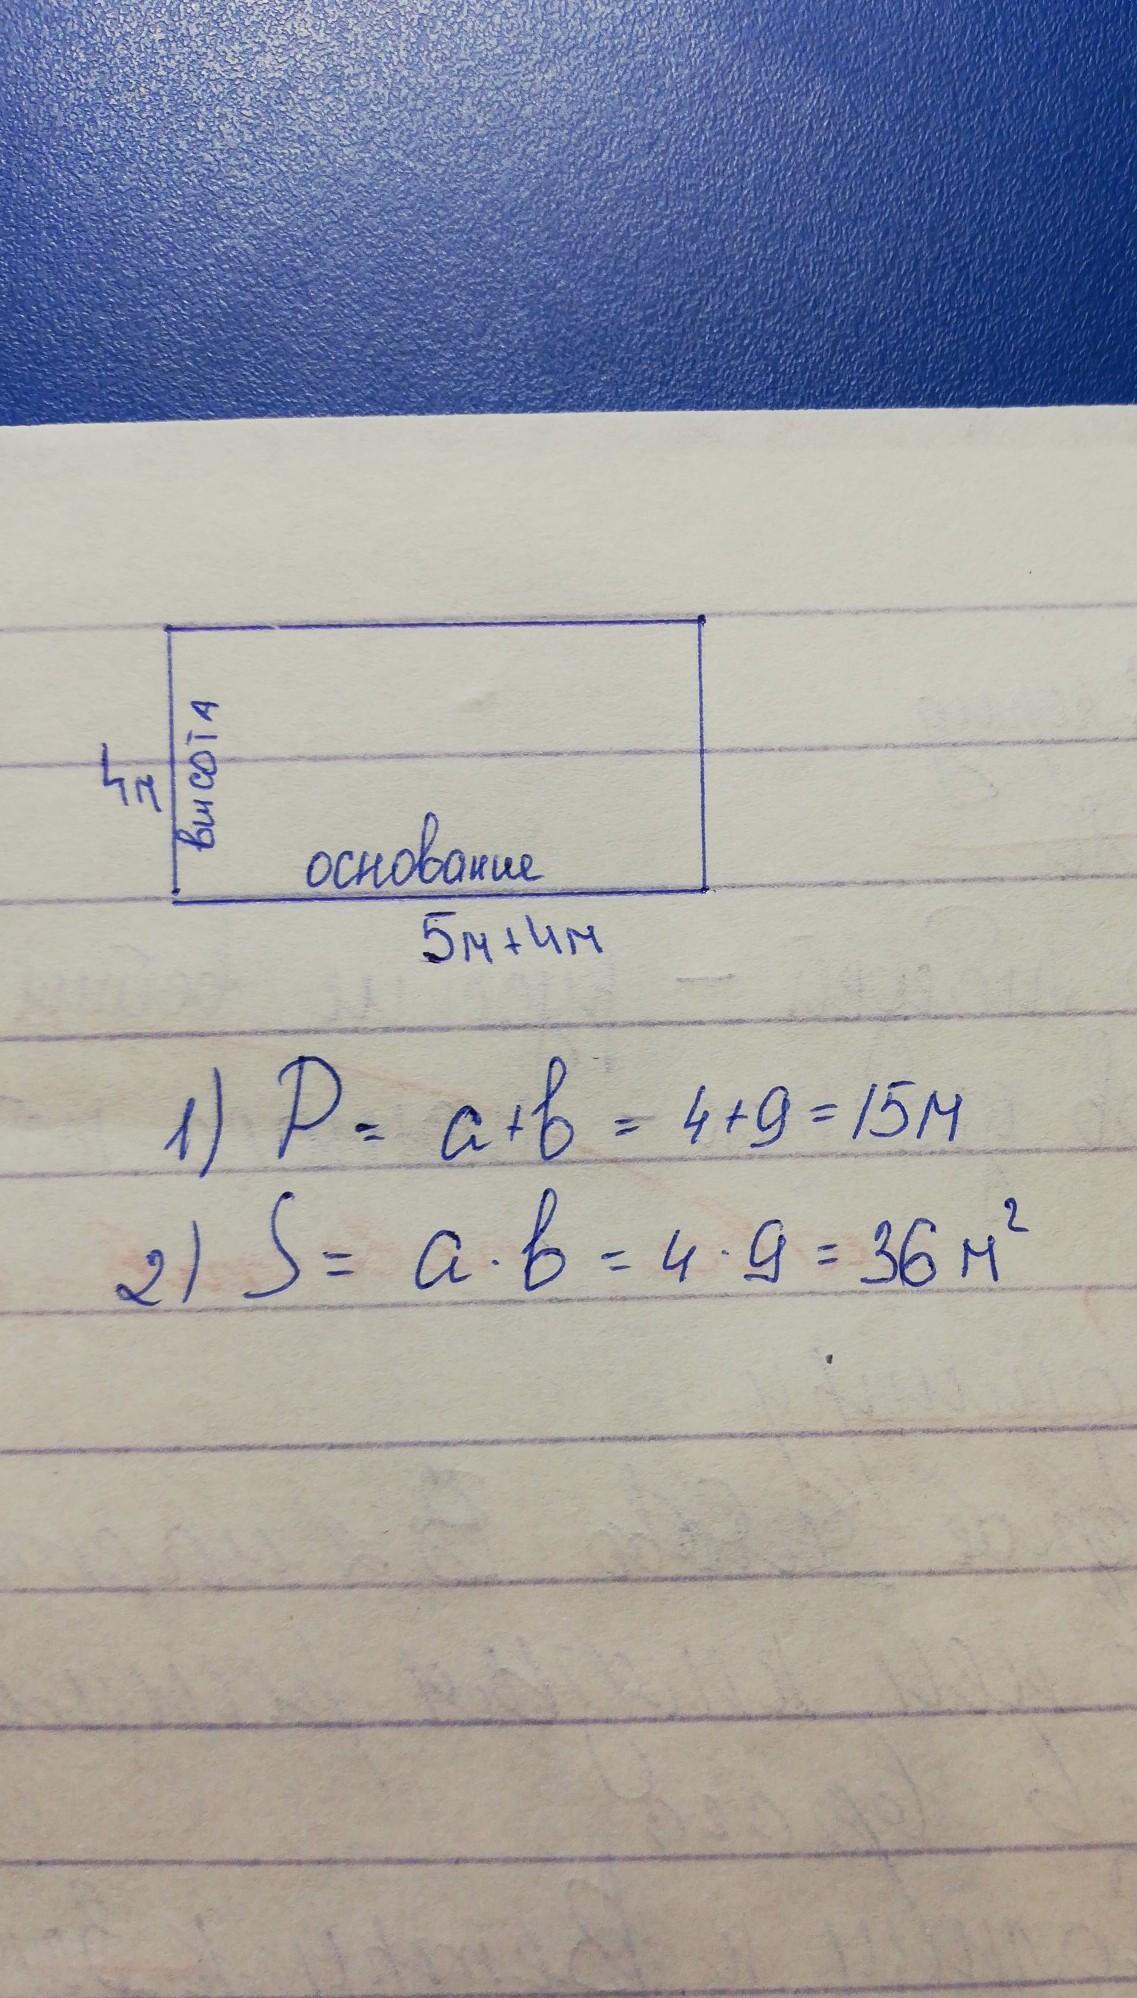 4м
высота
основание
5м+4м
1) P = a+b = 4+9 = 15м
2) S = a·b = 4·9 = 36 м²